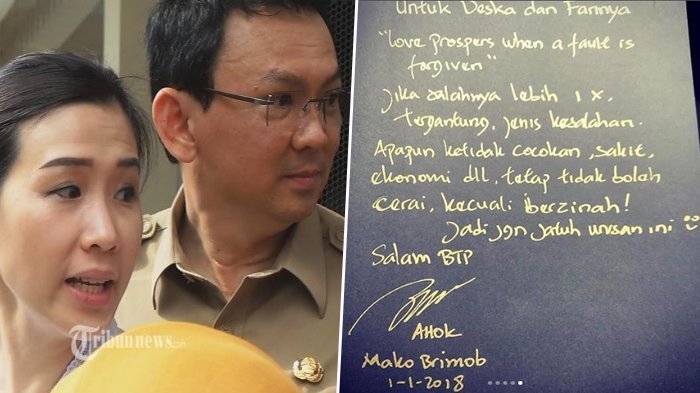 Untuk Deska dan Farinya
"Love prospers when a fault is
forgiven"
Jika salahnya lebih 1x.
Tergantung, jenis kesalahan.
Apapun ketidak cocokan, sakit,
ekonomi dll, tetap tidak boleh
cerai, kecuali berzinah!
Jadi jgn jatuh urusan ini
Salam BTP
AHOK
Mako Brimob
1-1-2018
Tribunnews.com